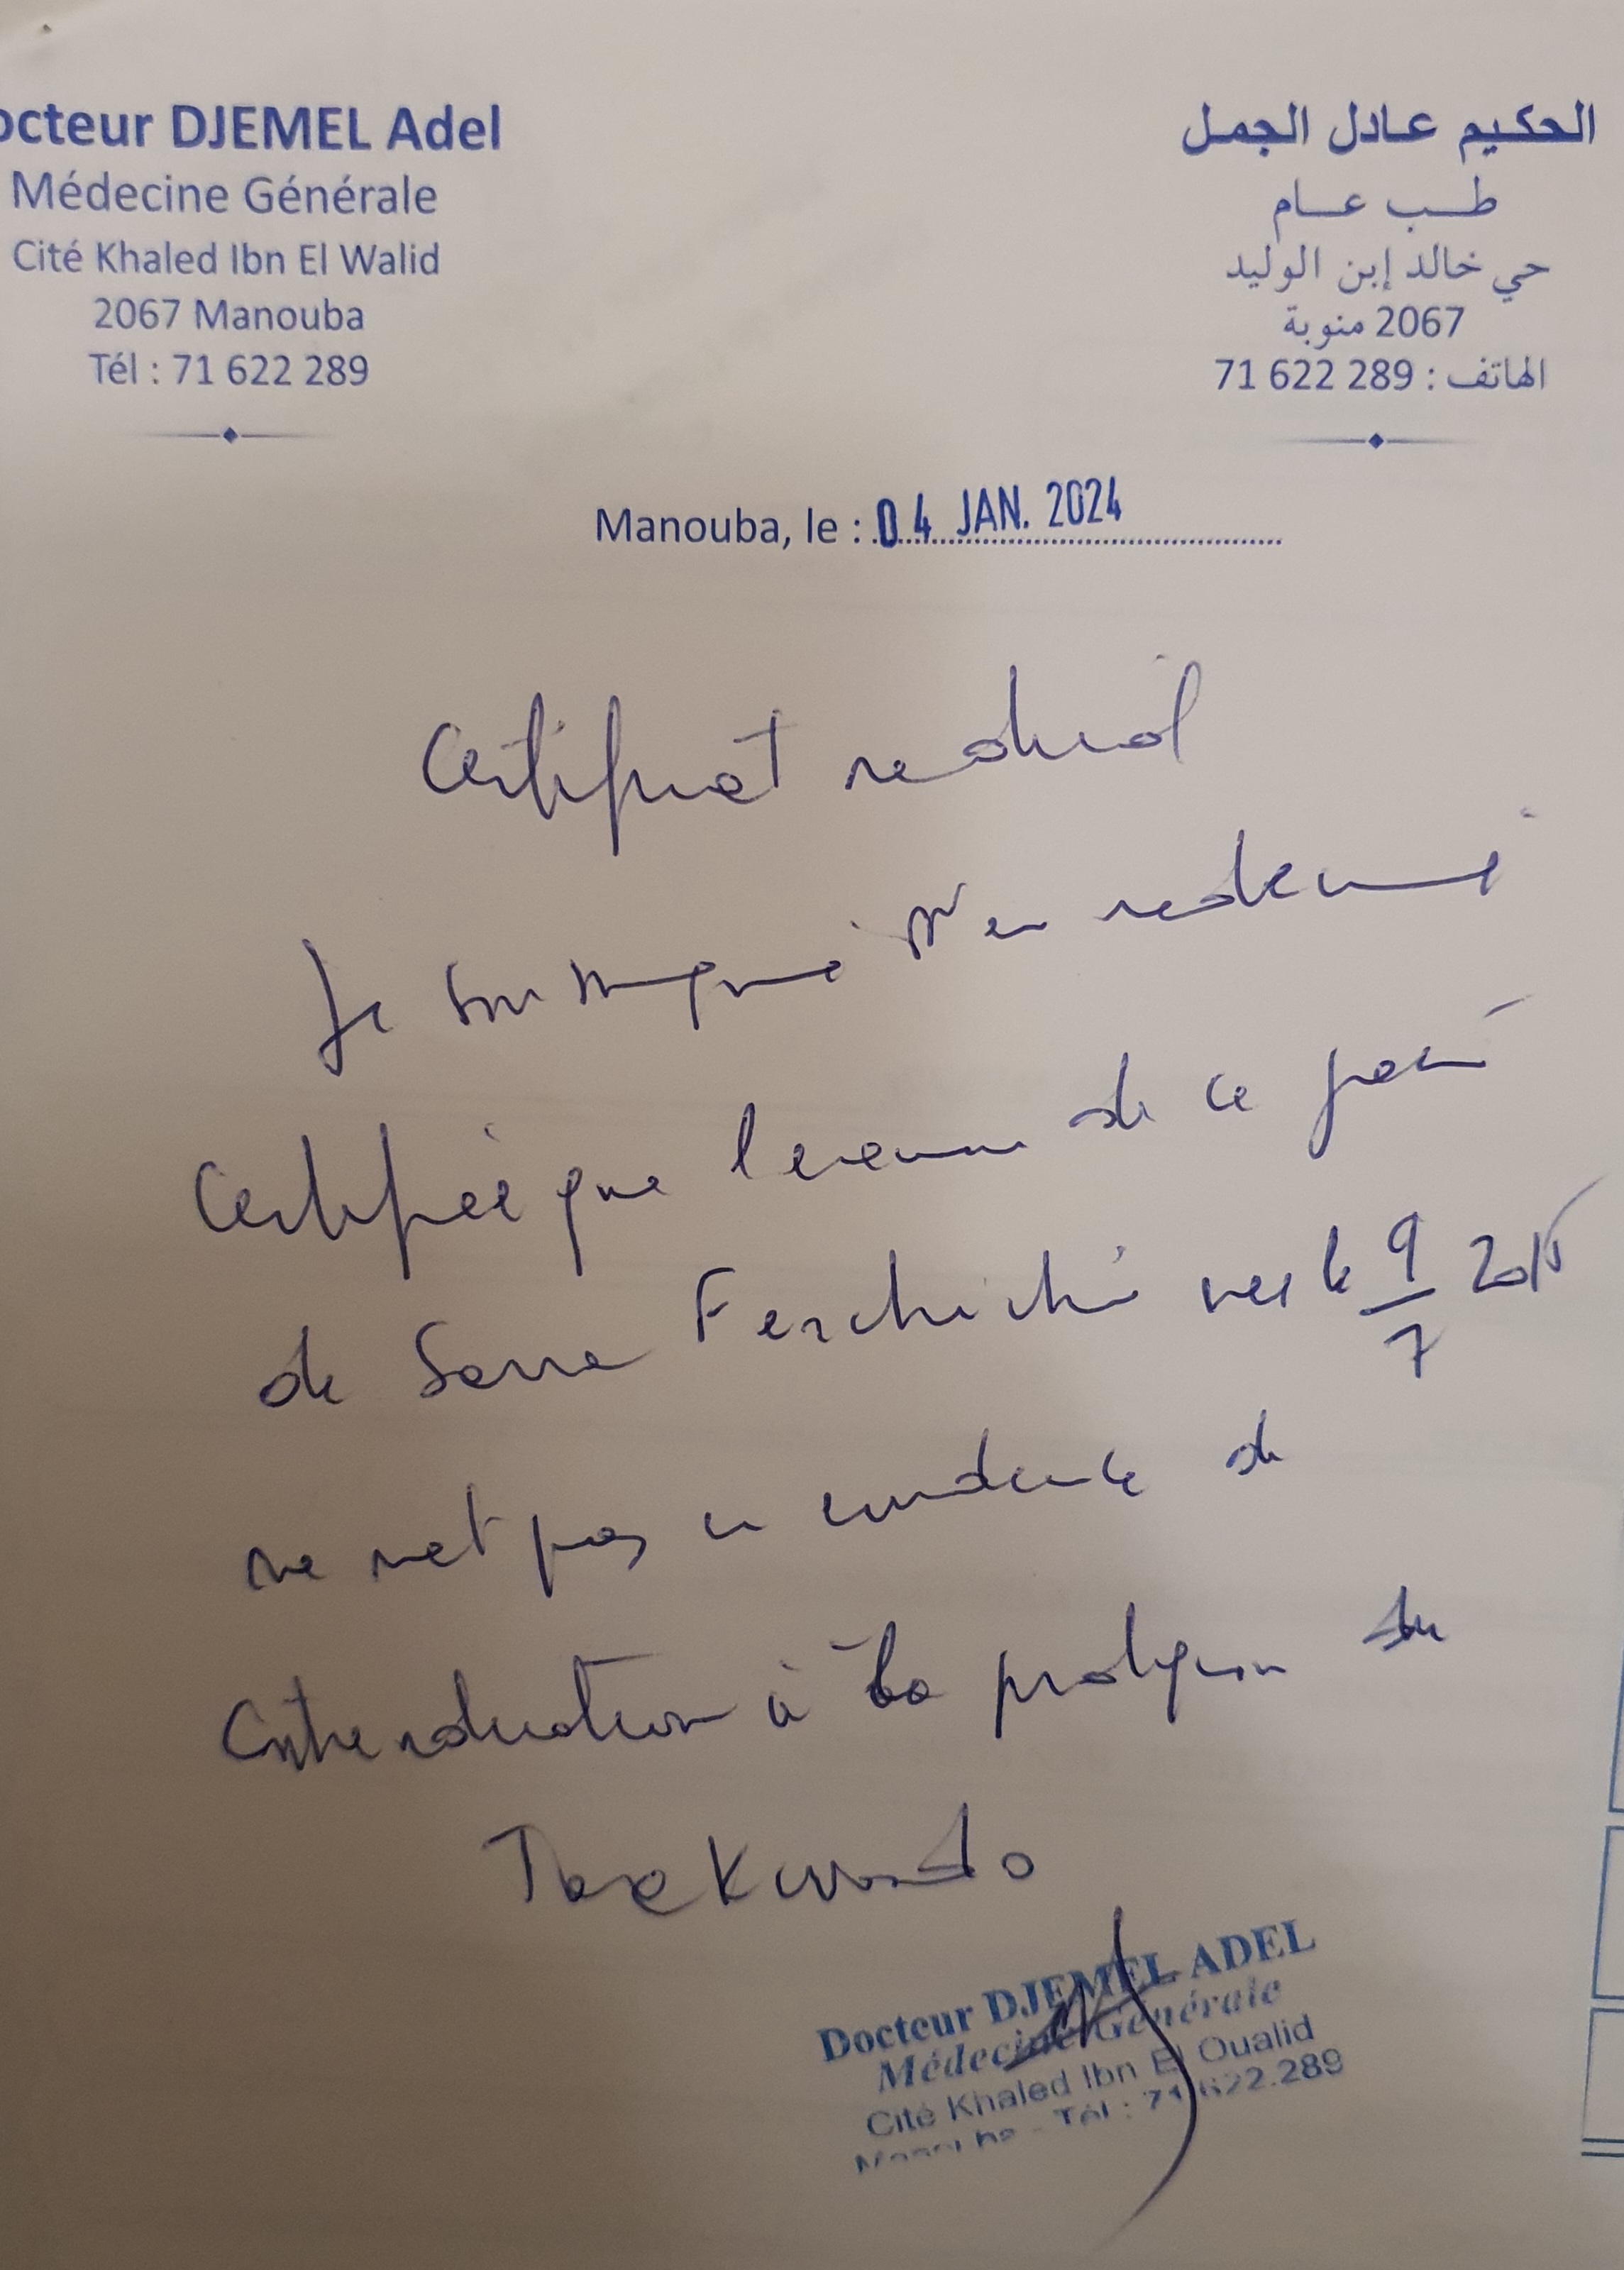 octeur DJEMEL Adel
Médecine Générale
Cité Khaled Ibn El Walid
2067 Manouba
Tél : 71 622 289
الحكيم عادل الجمل
طب عام
حي خالد إبن الوليد
2067 منوبة
الهاتف : 71 622 289
Manouba, le : 04 JAN. 2024
Certificat medical
Je soussigné Dr en medecine
Certifie que l'examen de ce jour
de Sarra Ferchichi nee le 9/7
ne met pas en evidence de
Contre indication à la pratique du
Taekwondo
Docteur DJEMEL ADEL
Médecine Générale
Cité Khaled Ibn El Oualid
Manouba - Tél : 71.622.289